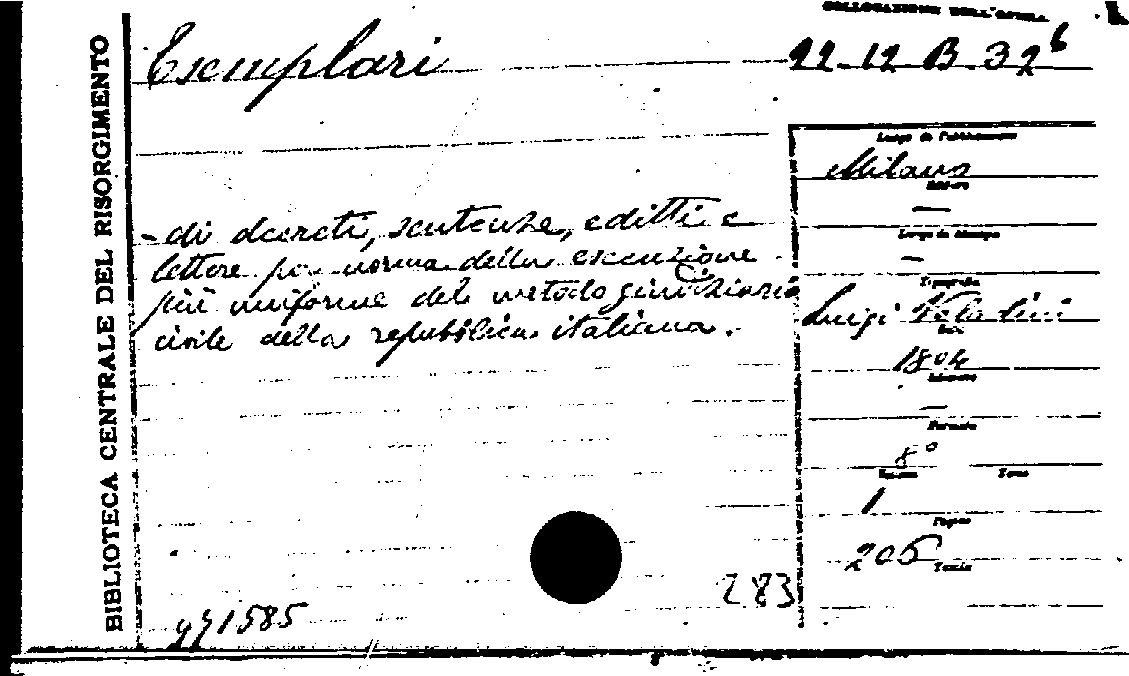 BIBLIOTECA CENTRALE DEL RISORGIMENTO
COLLOCAZIONE DELL'OPERA
Esemplari
22-12-B-32⁶
Luogo di Pubblicazione
Milano
Editore
—
Luogo di Stampa
—
Tipografia
Luigi Veladini
Data
1804
Edizione
—
Formato
8°
Volume Tomo
1
Pagine
206
Tavole
- di decreti, sentenze, editti e
lettere per norma della esecuzione
più uniforme del metodo giudiziario
civile della repubblica italiana.
283
991585